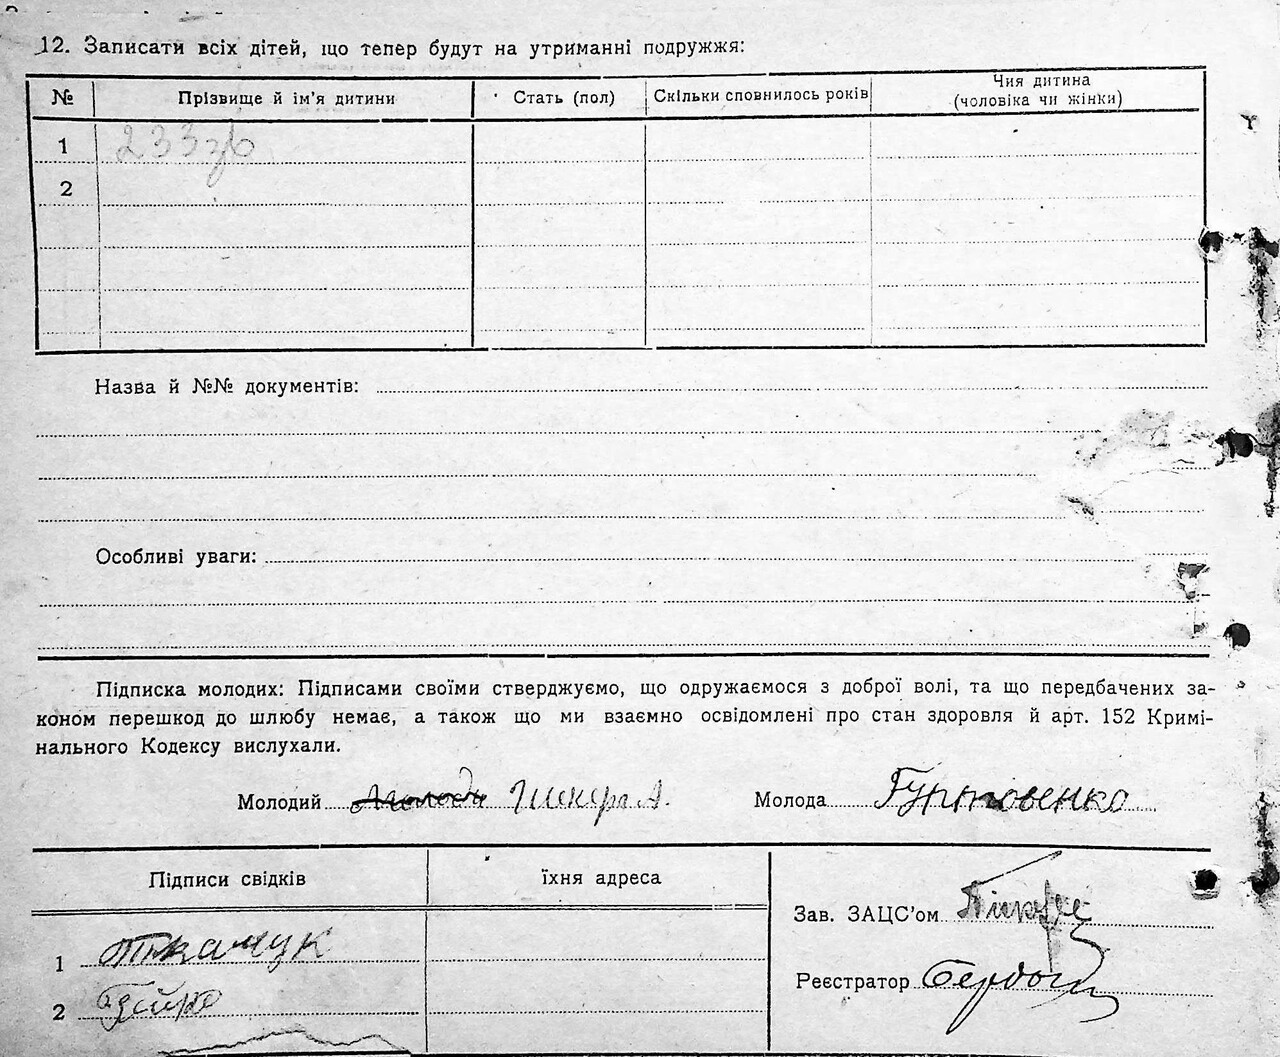 12. Записати всіх дітей, що тепер будут на утриманні подружжя:
№ Прізвище й ім'я дитини Стать (пол) Скільки сповнилось років Чия дитина (чоловіка чи жінки)
1 233
2
Назва й №№ документів:
Особливі уваги:
Підписка молодих: Підписами своїми стверджуємо, що одружаємося з доброї волі, та що передбачених за-
коном перешкод до шлюбу немає, а також що ми взаємно освідомлені про стан здоровля й арт. 152 Кримі-
нального Кодексу вислухали.
Молодий Молода Гуртовенко
Підписи свідків їхня адреса
Зав. ЗАЦС'ом
1 Ткачук
Реєстратор
2